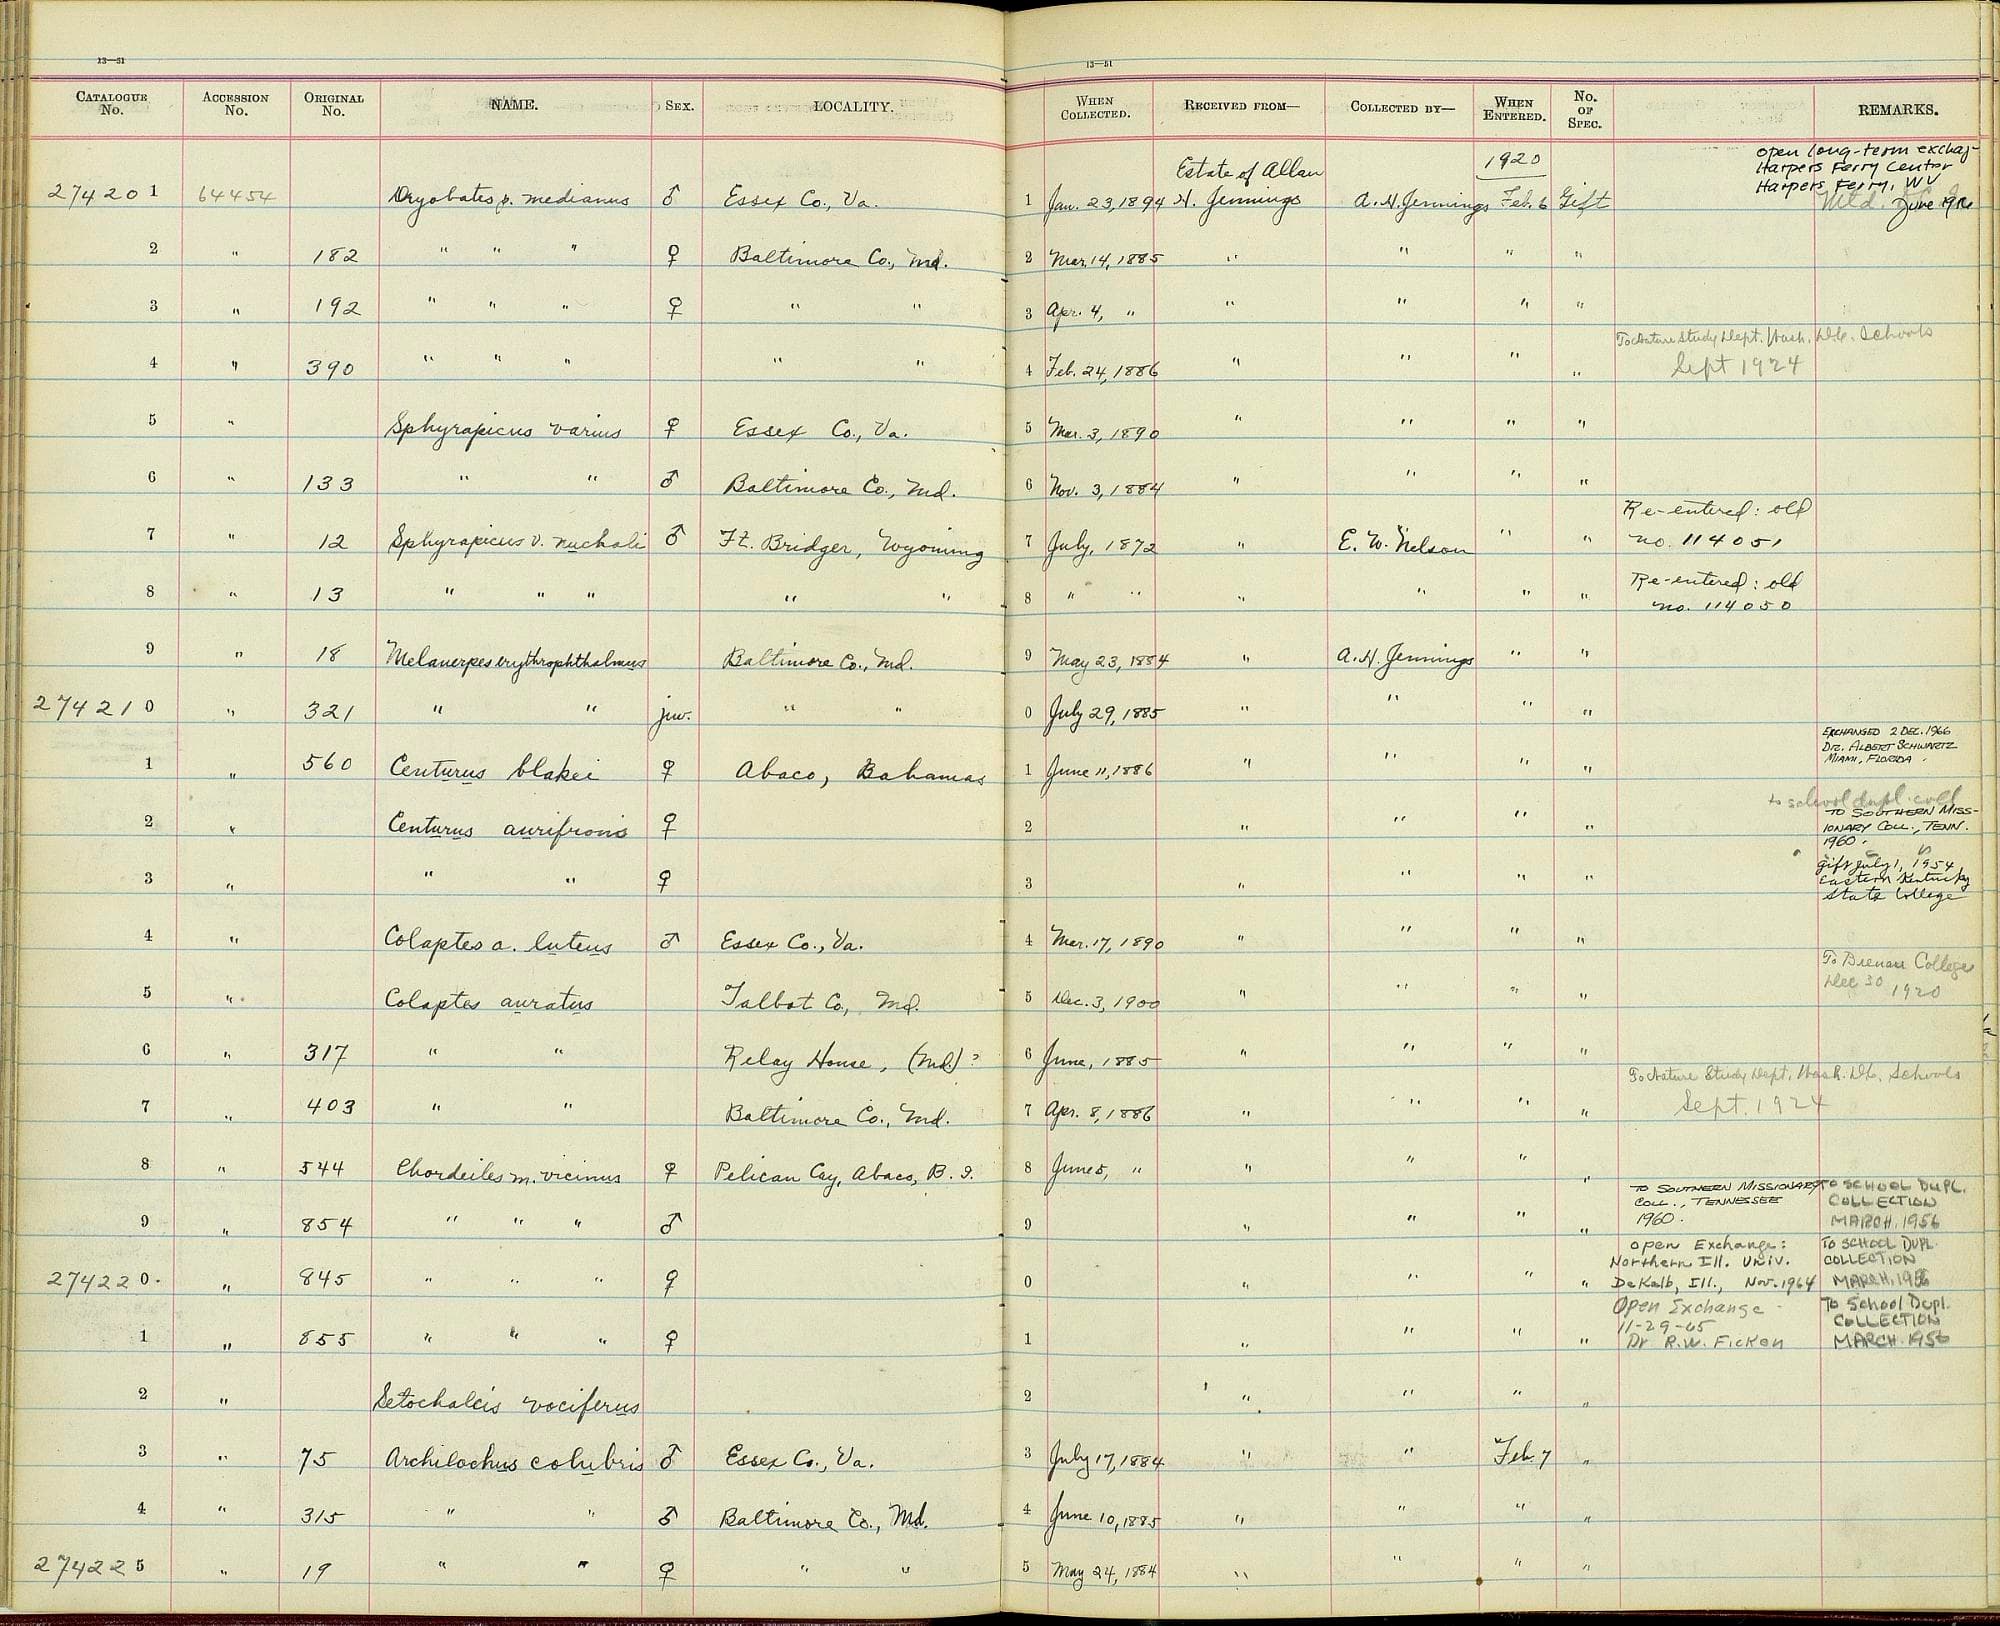 13—51 13—51
CATALOGUE No. ACCESSION No. ORIGINAL No. NAME. SEX. LOCALITY. WHEN COLLECTED. RECEIVED FROM— COLLECTED BY— WHEN ENTERED. No. OF SPEC. REMARKS.
open long-term exchag-
Harpers Ferry Center
Harpers Ferry, WV
June
Estate of Allan 1920
274201 64454 Dryobates p. medianus ♂ Essex Co., Va. 1 Jan. 23, 1894 H. Jennings A. H. Jennings Feb. 6 Gift
2 " 182 " " " ♀ Baltimore Co., Md. 2 Mar. 14, 1885 " " " "
3 " 192 " " " ♀ " " 3 Apr. 4, " " " " "
To Nature Study Dept. Wash. D.C. Schools
4 " 390 " " " " " 4 Feb. 24, 1886 " " " " Sept 1924
5 " Sphyrapicus varius ♀ Essex Co., Va. 5 Mar. 3, 1890 " " " "
6 " 133 " " ♂ Baltimore Co., Md. 6 Nov. 3, 1884 " " " "
Re-entered: old
7 " 12 Sphyrapicus v. nuchali ♂ Ft. Bridger, Wyoming 7 July, 1872 " E. W. Nelson " " no. 114051
Re-entered: old
8 " 13 " " " " " 8 " " " " " " no. 114050
9 " 18 Melanerpes erythrophthalmus Baltimore Co., Md. 9 May 23, 1884 " A. H. Jennings " "
274210 " 321 " " juv. " " 0 July 29, 1885 " " " "
EXCHANGED 2 DEC. 1966
DR. ALBERT SCHWARTZ
MIAMI, FLORIDA.
1 " 560 Centurus blakei ♀ Abaco, Bahamas 1 June 11, 1886 " " " "
to school dupl. coll
TO SOUTHERN MISS-
IONARY COLL., TENN.
1960.
2 " Centurus aurifrons ♀ 2 " " " "
gift July 1, 1954
Eastern Kentucky
State College
3 " " " ♀ 3 " " " "
4 " Colaptes a. luteus ♂ Essex Co., Va. 4 Mar. 17, 1890 " " " "
To Brenau College
Dec 30 1920
5 " Colaptes auratus Talbot Co., Md. 5 Dec. 3, 1900 " " " "
6 " 317 " " Relay House, (Md.)? 6 June, 1885 " " " "
To Nature Study Dept. Wash. D.C. Schools
7 " 403 " " Baltimore Co., Md. 7 Apr. 8, 1886 " " " " Sept. 1924
8 " 544 Chordeiles m. vicinus ♀ Pelican Cay, Abaco, B. I. 8 June 5, " " " " "
TO SOUTHERN MISSIONARY TO SCHOOL DUPL.
COLL., TENNESSEE COLLECTION
9 " 854 " " " ♂ 9 " " " " 1960. MARCH. 1956
open Exchange: TO SCHOOL DUPL.
Northern Ill. Univ. COLLECTION
274220. " 845 " " " ♀ 0 " " " " DeKalb, Ill., Nov. 1964 MARCH, 1956
Open Exchange To School Dupl.
11-29-65 COLLECTION
1 " 855 " " " ♀ 1 " " " " Dr R.W. Ficken MARCH. 1956
2 " Setochalcis vociferus 2 " " " "
3 " 75 Archilochus colubris ♂ Essex Co., Va. 3 July 17, 1884 " " Feb. 7 "
4 " 315 " " ♂ Baltimore Co., Md. 4 June 10, 1885 " " " "
274225 " 19 " " ♀ " " 5 May 24, 1884 " " " "